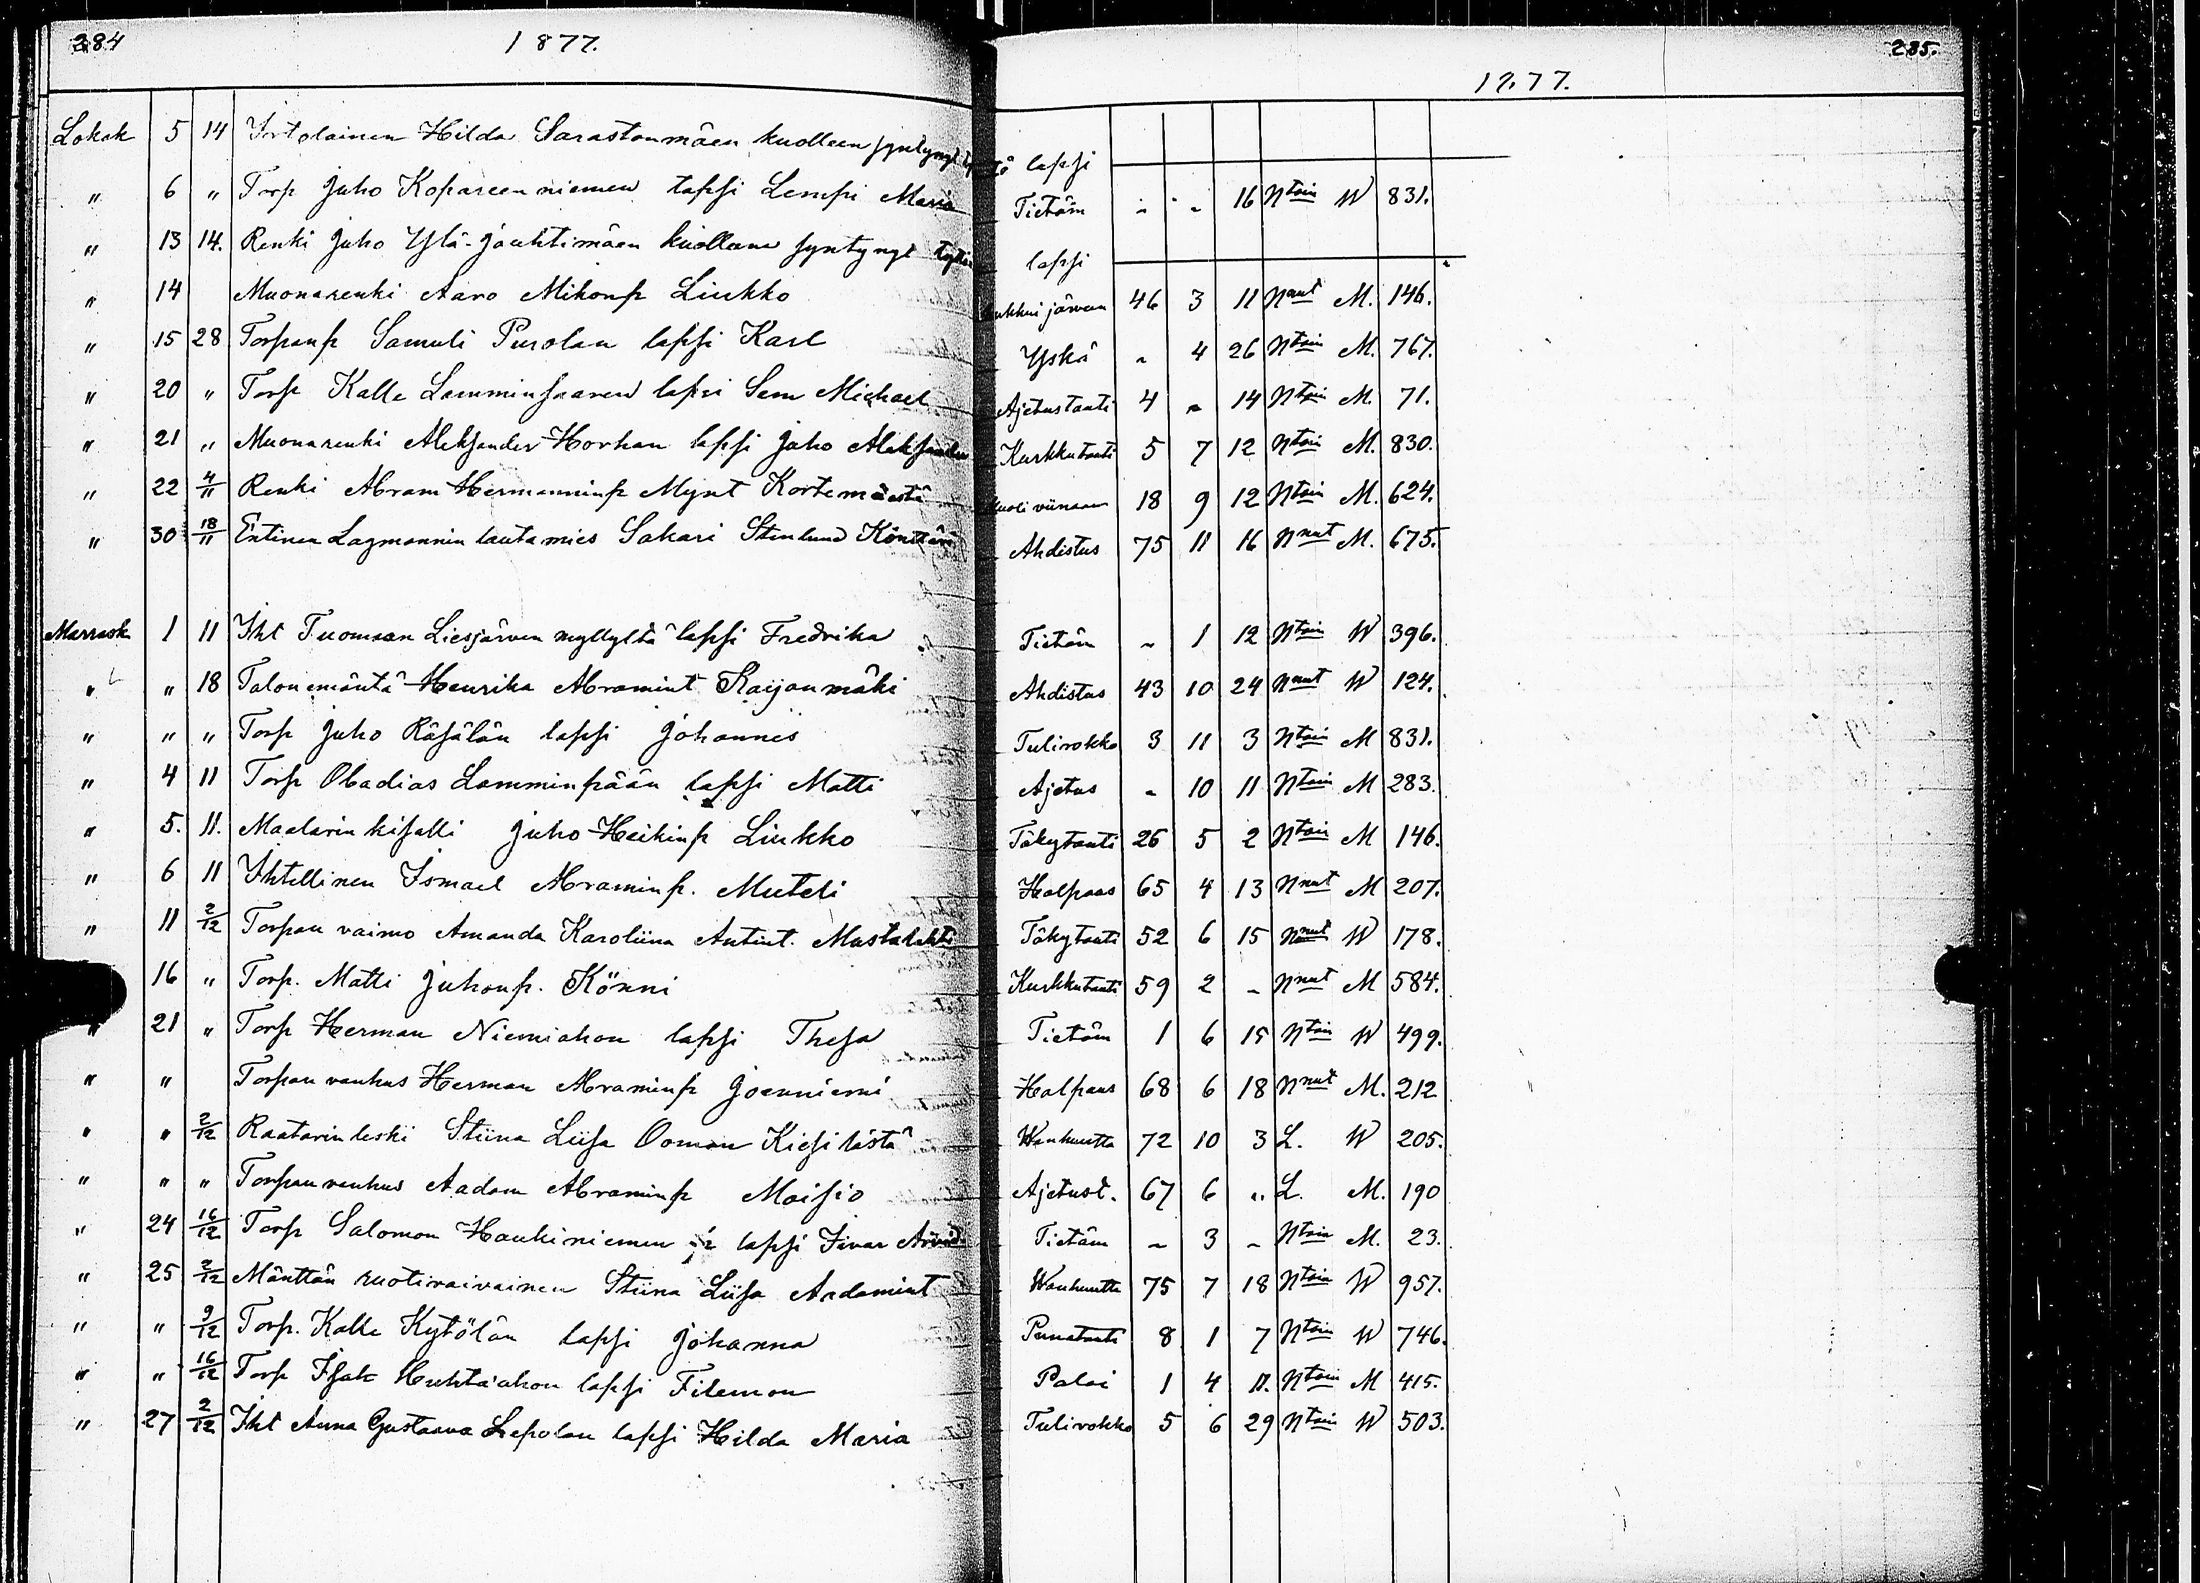 284 1877. 285.
1877.
Lokak 5 14 Irtolainen Hilda Sarastonmäen kuolleen syntynyt lapsi
" 6 " Torp Juho Kopareenniemen lapsi Lempi Maria Tietäm - - 16 Ntoin W 831.
" 13 14. Renki Juho Ylä-Jauhtimäen kuollena syntynyt tyttö lapsi
" 14 Muonarenki Aaro Mikonp Liukko järveen 46 3 11 Nnut M. 146.
" 15 28 Torpanp Samuli Purolan lapsi Karl Yskä - 4 26 Ntoin M. 767.
" 20 " Torp Kalle Lamminsaaren lapsi Sem Michael Ajetustauti 4 - 14 Ntoin M. 71.
" 21 " Muonarenki Aleksander Horhan lapsi Juho Aleksander Kurkkutauti 5 7 12 Ntoin M. 830.
" 22 4/11 Renki Abram Hermanninp Mynt Kortemäestä Kuoli viinaan 18 9 12 Ntoin M. 624.
" 30 18/11 Entinen Lagmannin lautamies Sakari Stenlund Ahdistus 75 11 16 Nnut M. 675.
Marrask 1 11 Iht Tuomaan Liesjärven myllyltä lapsi Fredrika Tietäm - 1 12 Ntoin W 396.
" " 18 Talonemäntä Henrika Abramint Raijanmäki Ahdistus 43 10 24 Nnut W 124.
" " " Torp Juho Räsälän lapsi Johannes Tulirokko 3 11 3 Ntoin M 831.
" 4 11 Torp Obadias Lamminpään lapsi Matti Ajetus - 10 11 Ntoin M 283.
" 5. 11. Maalarin kisälli Juho Heikinp Liukko Täkytauti 26 5 2 Ntoin M 146.
" 6 11 Ihtellinen Ismael Abraminp. Muteli Halpaus 65 4 13 Nnut M 207.
" 11 2/12 Torpan vaimo Amanda Karoliina Antint. Mustalahti Täkytauti 52 6 15 Nnut W 178.
16 " Torp. Matti Juhonp. Könni Kurkkutauti 59 2 - Nnut M 584.
" 21 " Torp Herman Niemiahon lapsi Thesa Tietäm 1 6 15 Ntoin W 499.
" " Torpan vanhus Herman Abraminp Joenniemi Halpaus 68 6 18 Nnut M. 212
" " 2/12 Raatarin leski Stiina Liisa Ooman Kiesilästä Wanhuutta 72 10 3 L. W 205.
" " " Torpan vanhus Aadam Abraminp Moisio Ajetust. 67 6 " L. M. 190
" 24 16/12 Torp Salomon Haukiniemen lapsi Iivar Arvid Tietäm - 3 - Ntoin M. 23.
" 25 2/12 Mänttän ruotivaivainen Stiina Liisa Aadamint Wanhuutta 75 7 18 Ntoin W 957.
" " 9/12 Torp. Kalle Kytölän lapsi Johanna Punatauti 8 1 7 Ntoin W 746.
" " 16/12 Torp Isak Huhta'ahon lapsi Filemon Palai 1 4 11. Ntoin M 415.
" 27 2/12 Iht Anna Gustaava Lepolan lapsi Hilda Maria Tulirokko 5 6 29 Ntoin W 503.